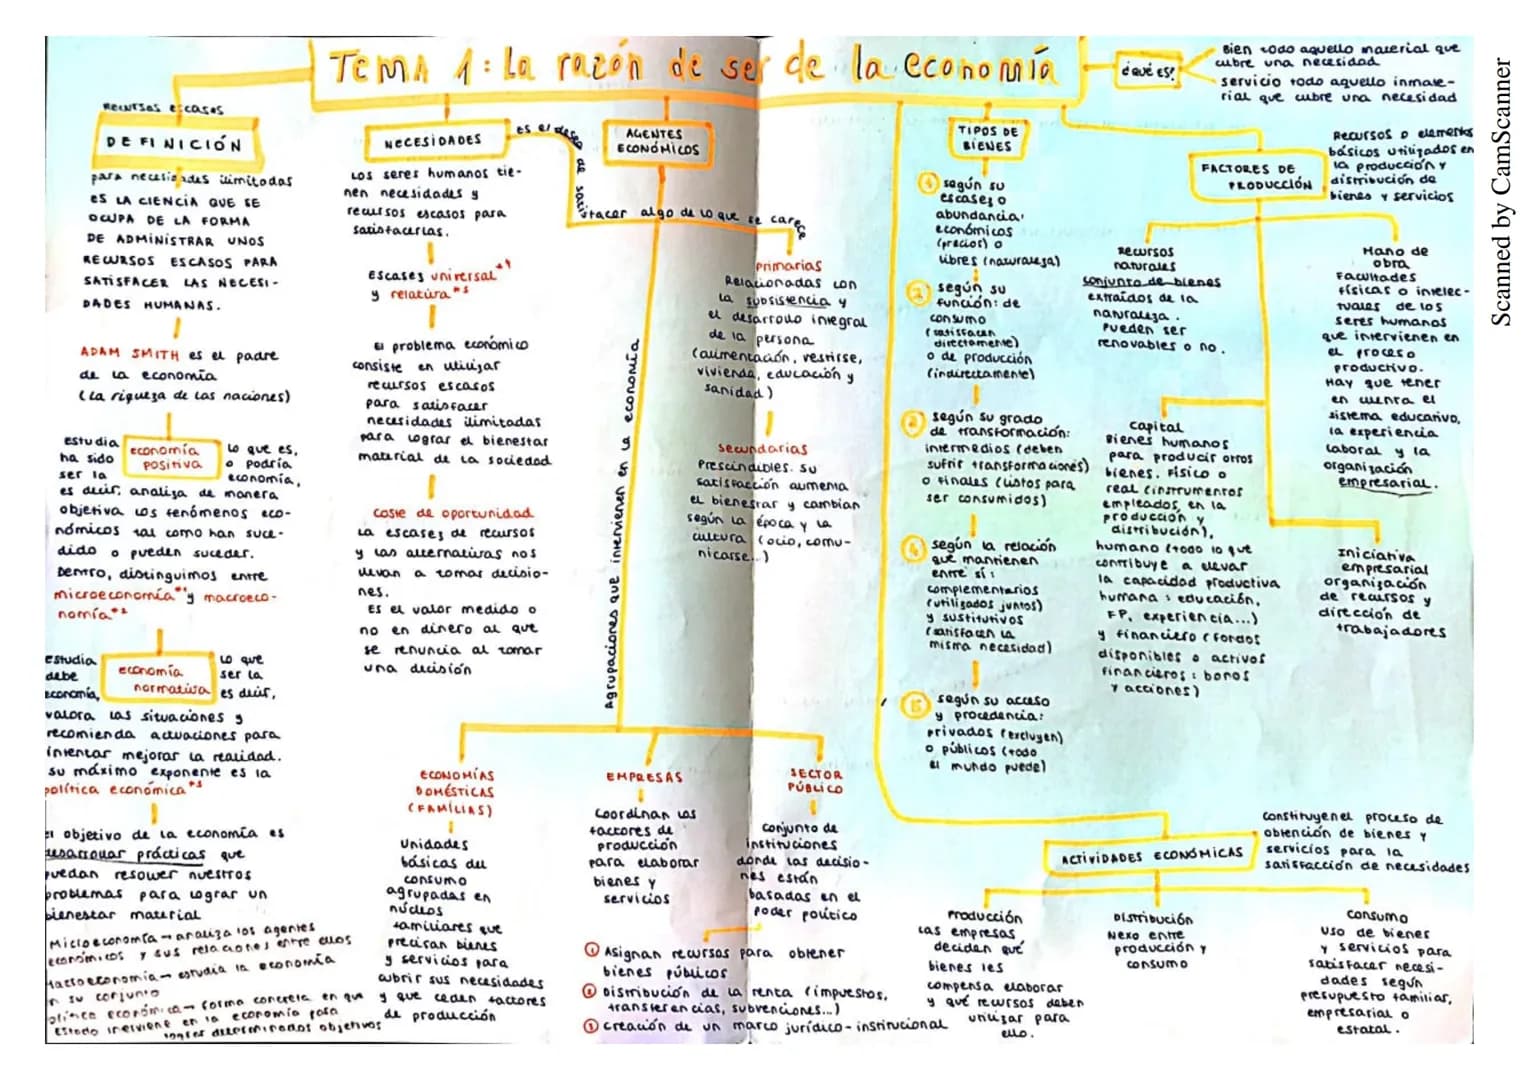 Tema 1: La razón de ser de la economía
¿Qué es?
Bien todo aquello material que
cubre una necesidad
servicio todo aquello inmate-
rial que cubre una necesidad
Recursos escasos
DEFINICIÓN
para necesidades ilimitadas
ES LA CIENCIA QUE SE
OCUPA DE LA FORMA
DE ADMINISTRAR UNOS
RECURSOS ESCASOS PARA
SATISFACER LAS NECESI-
DADES HUMANAS.
ADAM SMITH es el padre
de la economía
(La riqueza de las naciones)
estudia
ha sido
ser la
economía
positiva
lo que es,
o podría
economía,
es decir, analiza de manera
objetiva los fenómenos eco-
nómicos tal como han suce-
dido o pueden suceder.
Dentro, distinguimos entre
microeconomía*1 y macroeco-
nomía*2
estudia
debe
economía,
economía
normativa
lo que
ser la
es decir,
valora las situaciones y
recomienda actuaciones para
intentar mejorar la realidad.
su máximo exponente es la
política económica*3
el objetivo de la economía es
desarrollar prácticas que
puedan resolver nuestros
problemas para lograr un
bienestar material
Microeconomía → analiza los agentes
económicos y sus relaciones entre ellos
Macroeconomía → estudia la economía
en su conjunto
política económica → forma concreta en que
Estado interviene en la economía para
lograr determinados objetivos
NECESIDADES
es el deseo de satisfacer algo de lo que se carece
Los seres humanos tie-
nen necesidades y
recursos escasos para
satisfacerlas.
Escasez universal*4
y relativa*5
el problema económico
consiste en utilizar
recursos escasos
para satisfacer
necesidades ilimitadas
para lograr el bienestar
material de la sociedad
coste de oportunidad
La escasez de recursos
y las alternativas nos
llevan a tomar decisio-
nes.
Es el valor medido o
no en dinero al que
se renuncia al tomar
una decisión
Primarias
Relacionadas con
la subsistencia y
el desarrollo integral
de la persona
(alimentación, vestirse,
vivienda, educación y
sanidad)
Secundarias
Prescindibles. Su
satisfacción aumenta
el bienestar y cambian
según la época y la
cultura (ocio, comu-
nicarse...)
AGENTES
ECONÓMICOS
Agrupaciones que intervienen en la economía
ECONOMÍAS
DOMÉSTICAS
(FAMILIAS)
Unidades
básicas de
consumo
agrupadas en
núcleos
familiares que
precisan bienes
y servicios para
cubrir sus necesidades
y que ceden factores
de producción
EMPRESAS
Coordinan los
factores de
producción
para elaborar
bienes y
servicios
SECTOR
PÚBLICO
Conjunto de
instituciones
donde las decisio-
nes están
basadas en el
poder político
① Asignan recursos para obtener
bienes públicos
② Distribución de la renta (impuestos,
transferencias, subvenciones...)
③ creación de un marco jurídico-institucional
TIPOS DE
BIENES
① según su
escasez o
abundancia:
económicos
(precios) o
libres (naturaleza)
② según su
función: de
consumo
(satisfacen
directamente)
o de producción
(indirectamente)
según su grado
de transformación:
intermedios (deben
sufrir transformaciones)
o finales (listos para
ser consumidos)
④ según la relación
que mantienen
entre sí:
complementarios
(utilizados juntos)
y sustitutivos
(satisfacen la
misma necesidad)
⑤ según su acceso
y procedencia:
privados (excluyen)
o públicos (todo
el mundo puede)
FACTORES DE
PRODUCCIÓN
Recursos o elementos
básicos utilizados en
la producción y
distribución de
bienes y servicios
Recursos
naturales
conjunto de bienes
extraídos de la
naturaleza.
Pueden ser
renovables o no.
Mano de
obra
Facultades
físicas o intelec-
tuales de los
seres humanos
que intervienen en
el proceso
productivo.
Hay que tener
en cuenta el
sistema educativo,
la experiencia
laboral y la
organización
empresarial.
capital
Bienes humanos
para producir otros
bienes. Físico o
real (instrumentos
empleados en la
producción y
distribución),
humano (todo lo que
contribuye a elevar
la capacidad productiva
humana: educación,
FP, experiencia...)
y financiero (fondos
disponibles o activos
financieros: bonos
y acciones)
Iniciativa
empresarial
organización
de recursos y
dirección de
trabajadores
ACTIVIDADES ECONÓMICAS
Constituyen el proceso de
obtención de bienes y
servicios para la
satisfacción de necesidades
Producción
Las empresas
deciden qué
bienes les
compensa elaborar
y qué recursos deben
utilizar para
ello.
Distribución
Nexo entre
producción y
consumo
Consumo
Uso de bienes
y servicios para
satisfacer necesi-
dades según
presupuesto familiar,
empresarial o
estatal.
Scanned by CamScanner